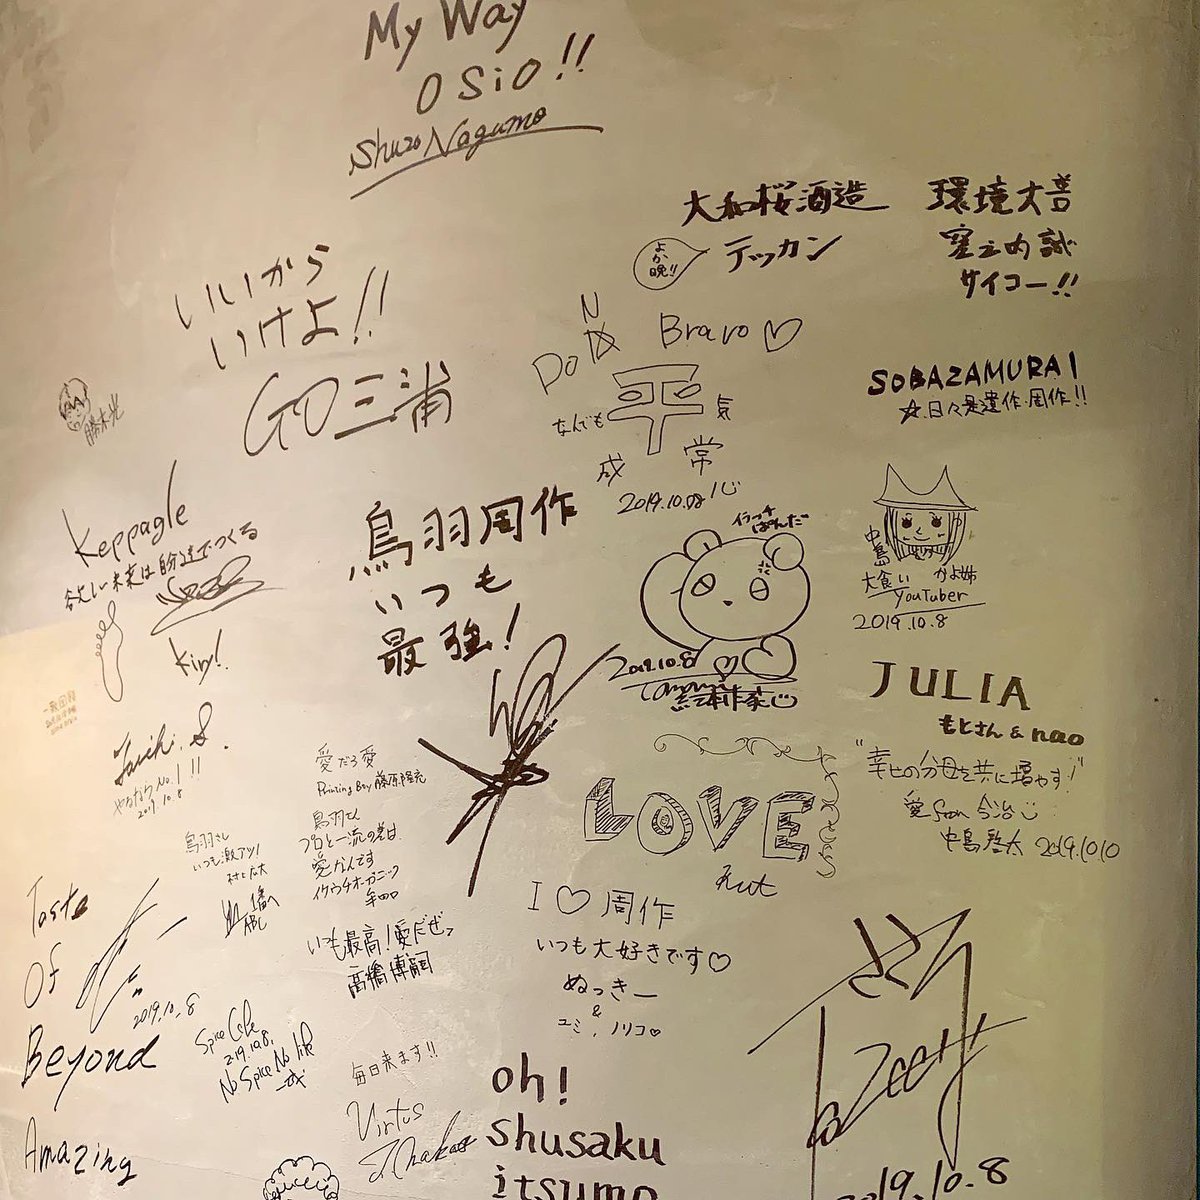 My Way
OSiO!!
Shuzo Nagumo
大和桜酒造
テッカン
よか晩!!
環境大善
窪之内誠
サイコー!!
いいから
いけよ!!
GO三浦
N
Bravo♡
平
なんでも
気
成
常
心
2019.10.08
SOBAZAMURAI
☆日々是遺作・周作!!
Keppagle
欲しい未来は自分達でつくる
kiny!
鳥羽周作
いつも
最強!
イラッチ
ぱんだー
2019.10.8
絵本作家
中島
大食い かよ姉
YouTuber
2019.10.8
JULIA
もとさん & nao
"幸せの分母を共に増やす!"
愛 from 今治
中島啓太 2019.10.10
やるなら No.1 !!
2019.10.8
愛だろ愛
Printing Boy 藤原隆充
鳥羽さん
プロと一流の差は
愛なんです
イケウチオーガニック
牟田口
鳥羽さん
いつも激アツ!
ABC
LOVE
いつも最高!愛だぜっ
高橋博嗣
I ♡ 周作
いつも大好きです♡
ぬっきー
&
ユミ、ノリコ♡
Taste
Of
Beyond
Amazing
2019.10.8
Spice Cafe
2019.10.8.
No Spice No life
毎日来ます!!
Virtus
oh!
shusaku
itsumo
2019.10.8